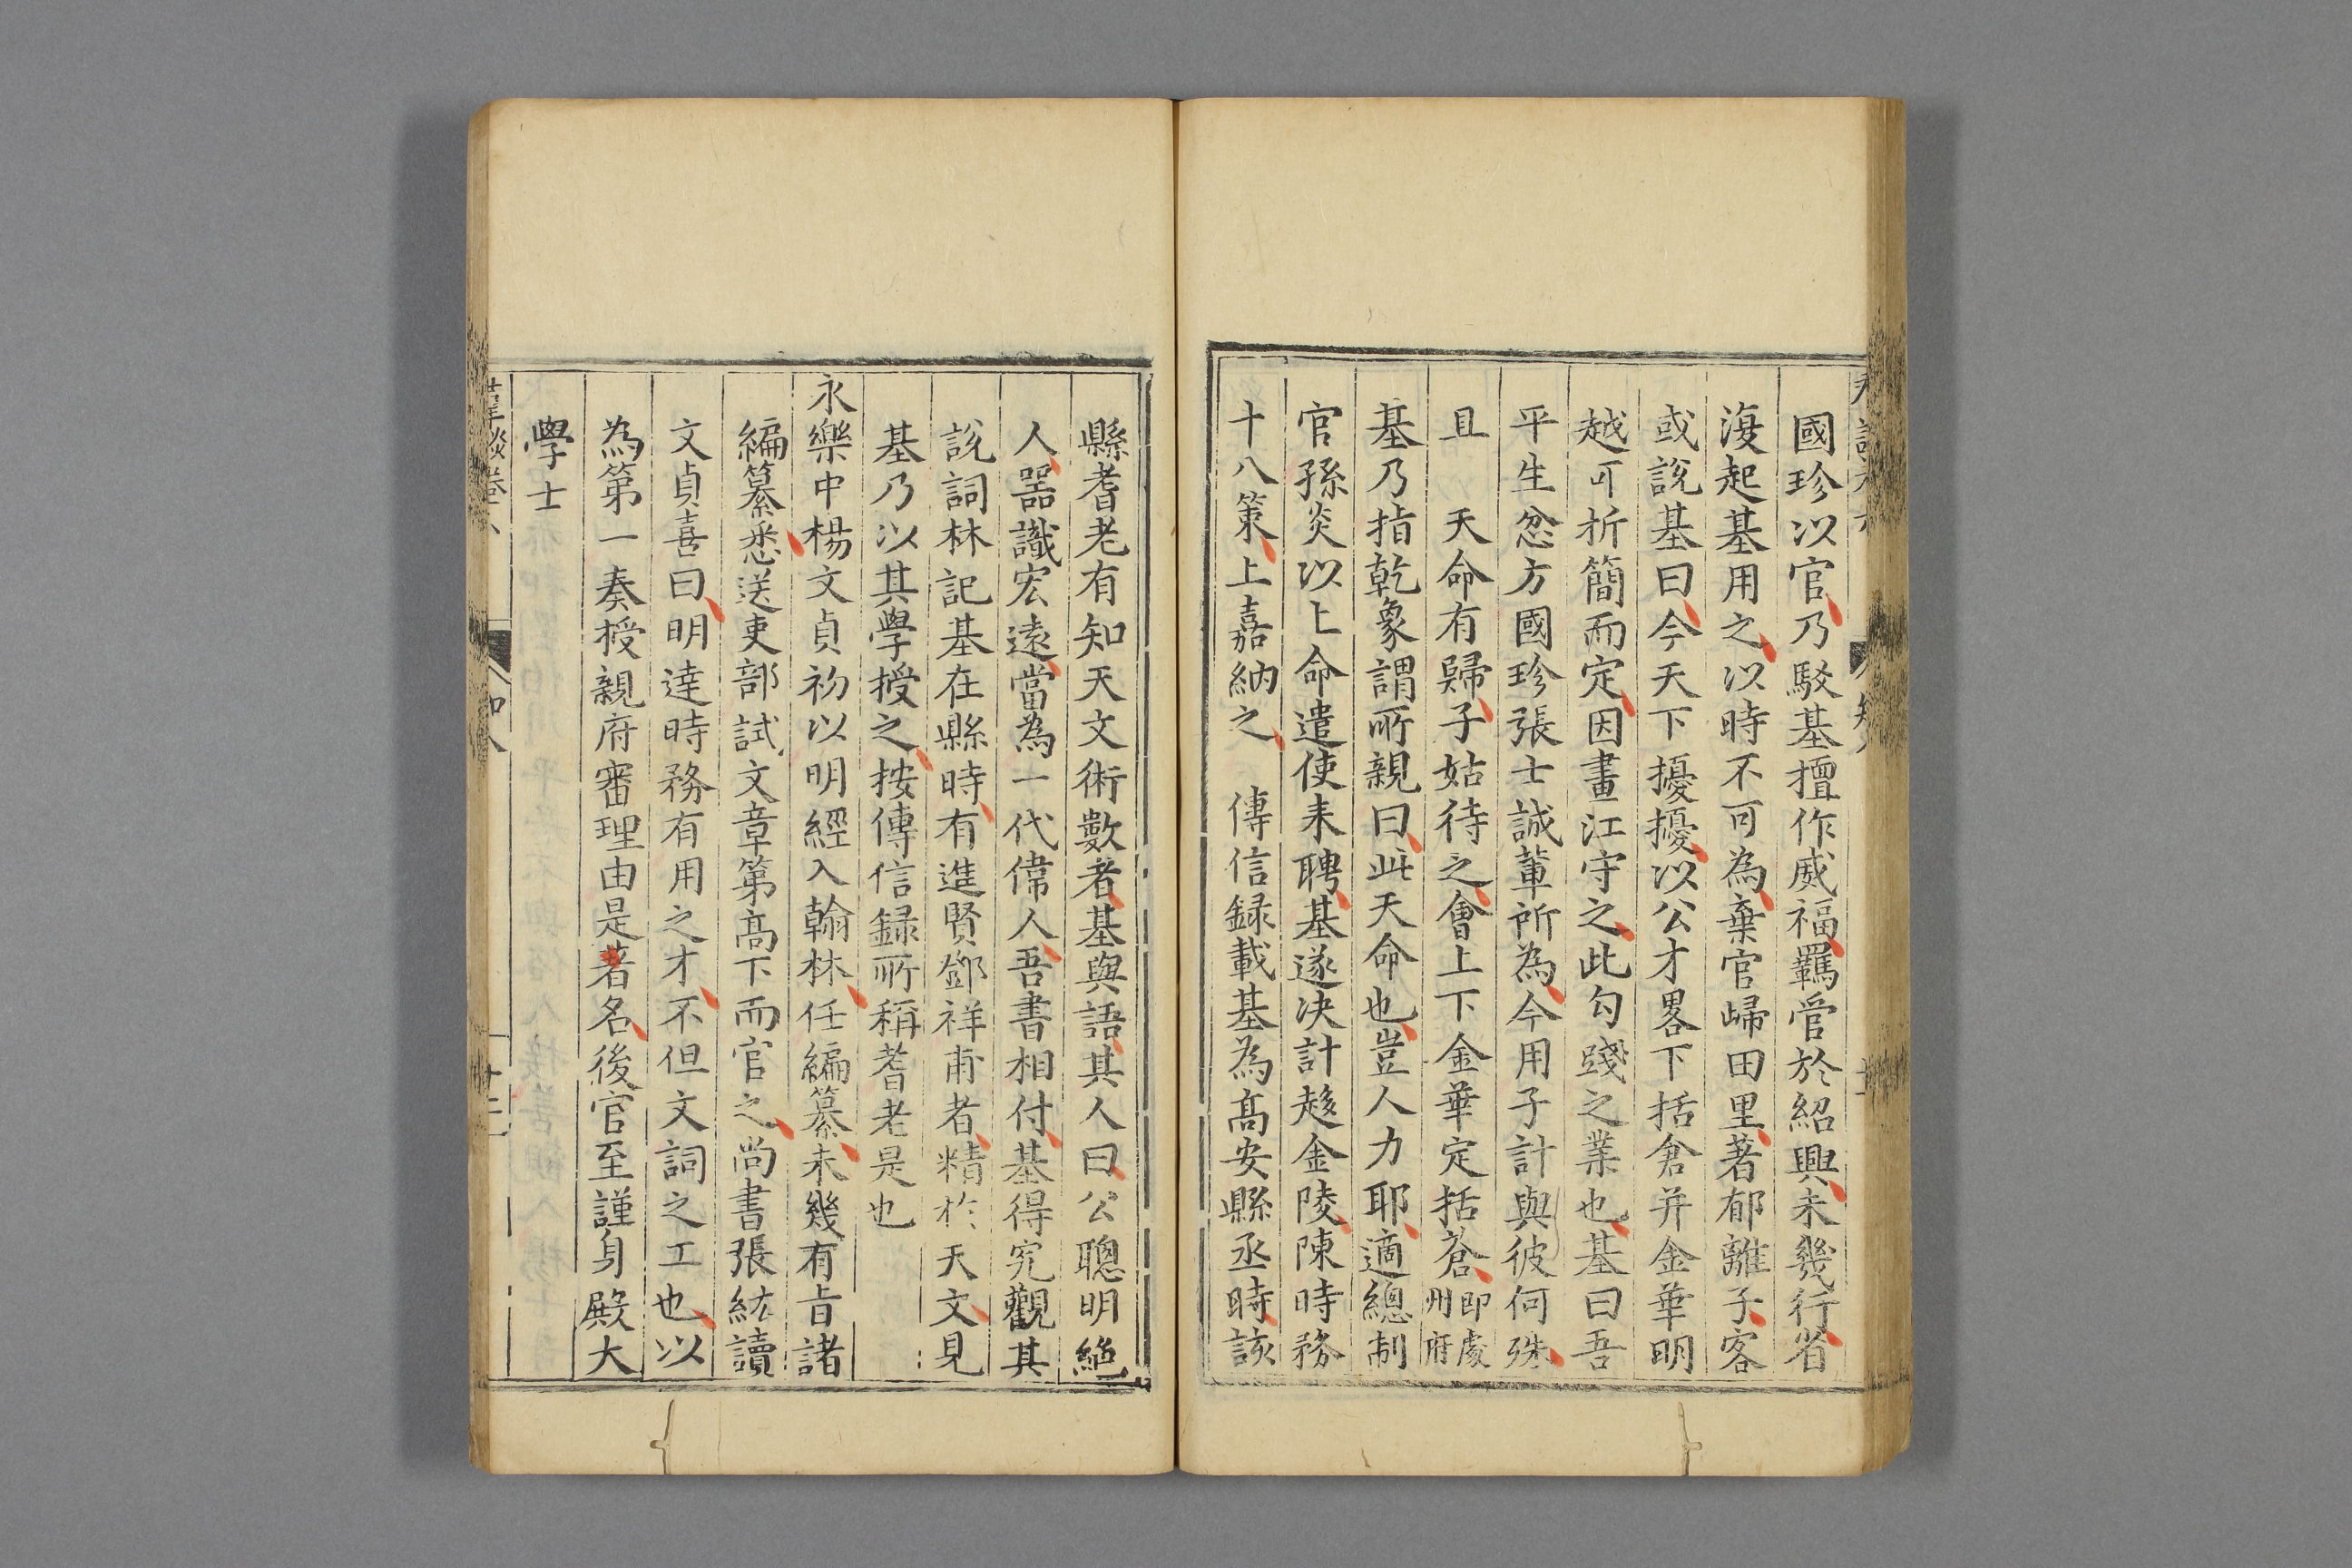 國珍以官乃駁基擅作威福羈管於紹興未幾行省
復起基用之以時不可為棄官歸田里著郁離子客
或說基曰今天下擾擾以公才畧下括倉并金華明
越可折簡而定因畫江守之此勾踐之業也基曰吾
平生忿方國珍張士誠輩所為今用子計與彼何殊
且 天命有歸子姑待之會上下金華定括蒼即處州府
基乃指乾象謂所親曰此天命也豈人力耶適總制
官孫炎以上命遣使来聘基遂决計趍金陵陳時務
十八策上嘉納之 傳信録載基為高安縣丞時該
縣耆老有知天文術數者基與語其人曰公聰明絶
人噐識宏遠當為一代偉人吾書相付基得究觀其
說詞林記基在縣時有進賢鄧祥甫者精於天文見
基乃以其學授之按傳信録所稱耆老是也
永樂中楊文貞初以明經入翰林任編纂未幾有旨諸
編纂悉送吏部試文章第高下而官之尚書張紞讀
文貞喜曰明達時務有用之才不但文詞之工也以
為第一奏授親府審理由是著名後官至謹身殿大
學士